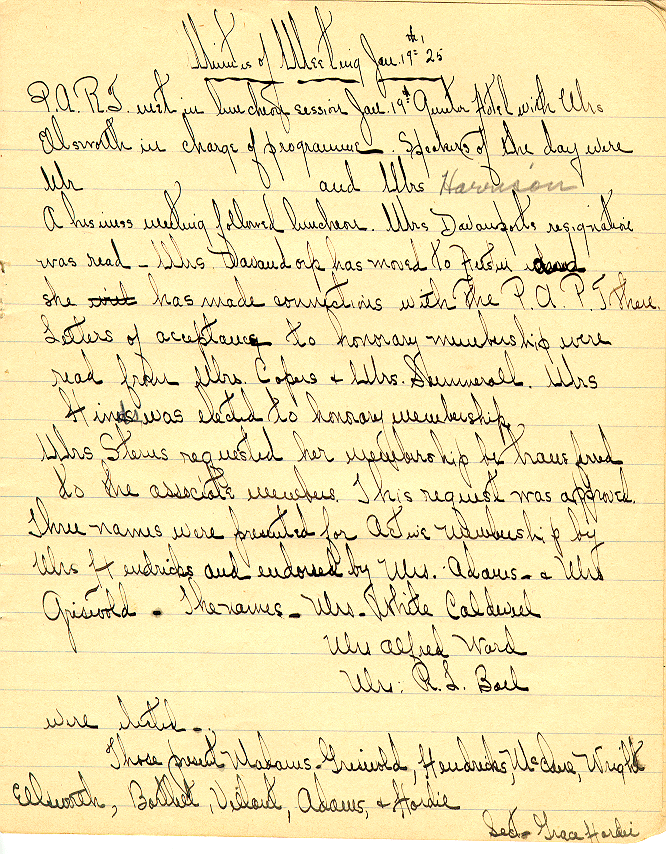 Minutes of Meeting Jan. 19th 25
P.A.R.T. met in luncheon session Jan. 19th Gunter Hotel with Mrs
Ellsworth in charge of programme. Speakers of the day were
Mr and Mrs Harrison
A business meeting followed luncheon. Mrs Davenports resignation
was read - Mrs. has moved to and
she has made connections with the P.A.P.T there.
Letters of acceptance to honorary membership were
read from Mrs. Copers & Mrs. Summerall. Mrs
Hinds was elected to honorary membership.
Mrs Sterns requested her membership be transferred
to the associate members. This request was approved.
Three names were presented for Active Membership by
Mrs Hendricks and endorsed by Mrs. Adams - & Mrs
Griswold - The names - Mrs. White Caldwell
Mrs Alfred Ward
Mrs. R. L.
were elected -
Those present Madams - Griswold, Hendricks, McClure, Wright
Ellsworth, , , Adams, & Hardie
Sect. Grace Hardie